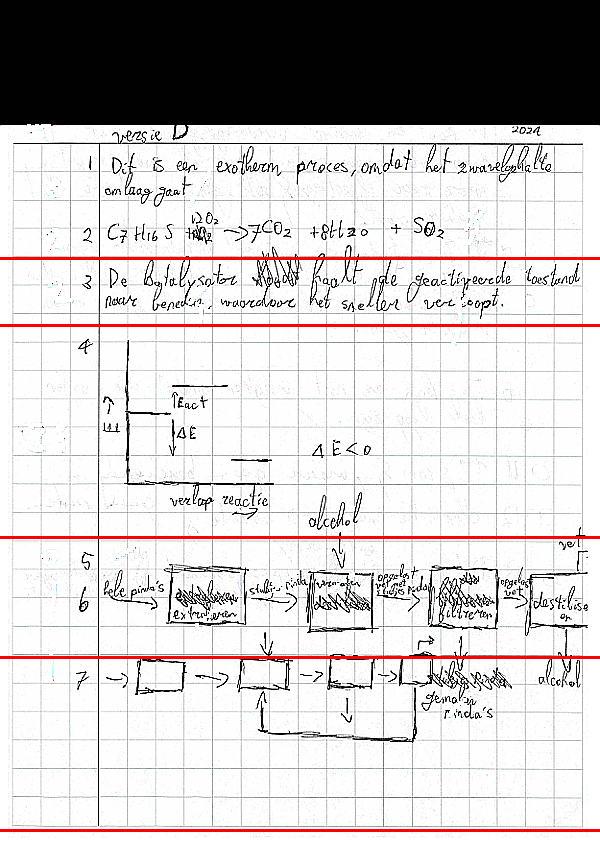 versie D
2024
1 Dit is een exotherm proces, omdat het zwavelgehalte
omlaag gaat
2 C7 H16 S + 12O2 → 7CO2 + 8H2O + SO2
3 De katalysator haalt de geactiveerde toestand
naar beneden, waardoor het sneller verloopt.
4
↑ Eact
E
↓ ΔE
ΔE < 0
verloop reactie
→
alcohol
5
vet
6 hele pinda's
extraheren
stukjes pinda
vermalen
opgelost
vet met
stukjes pinda
filtreren
opgelost
vet
destilleren
7
gemalen
pinda's
alcohol